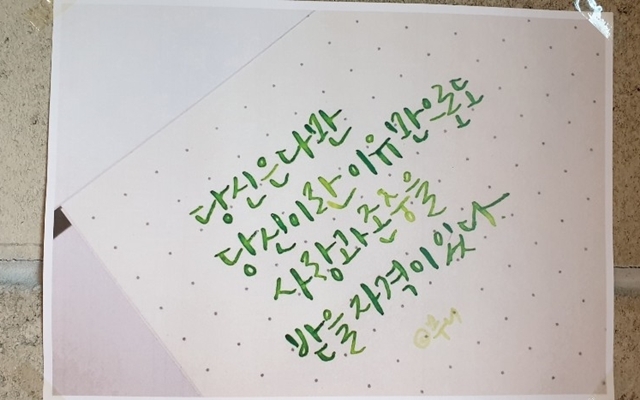 당신은 다만
당신이란 이유만으로도
사랑과 존중을
받을 자격이 있다